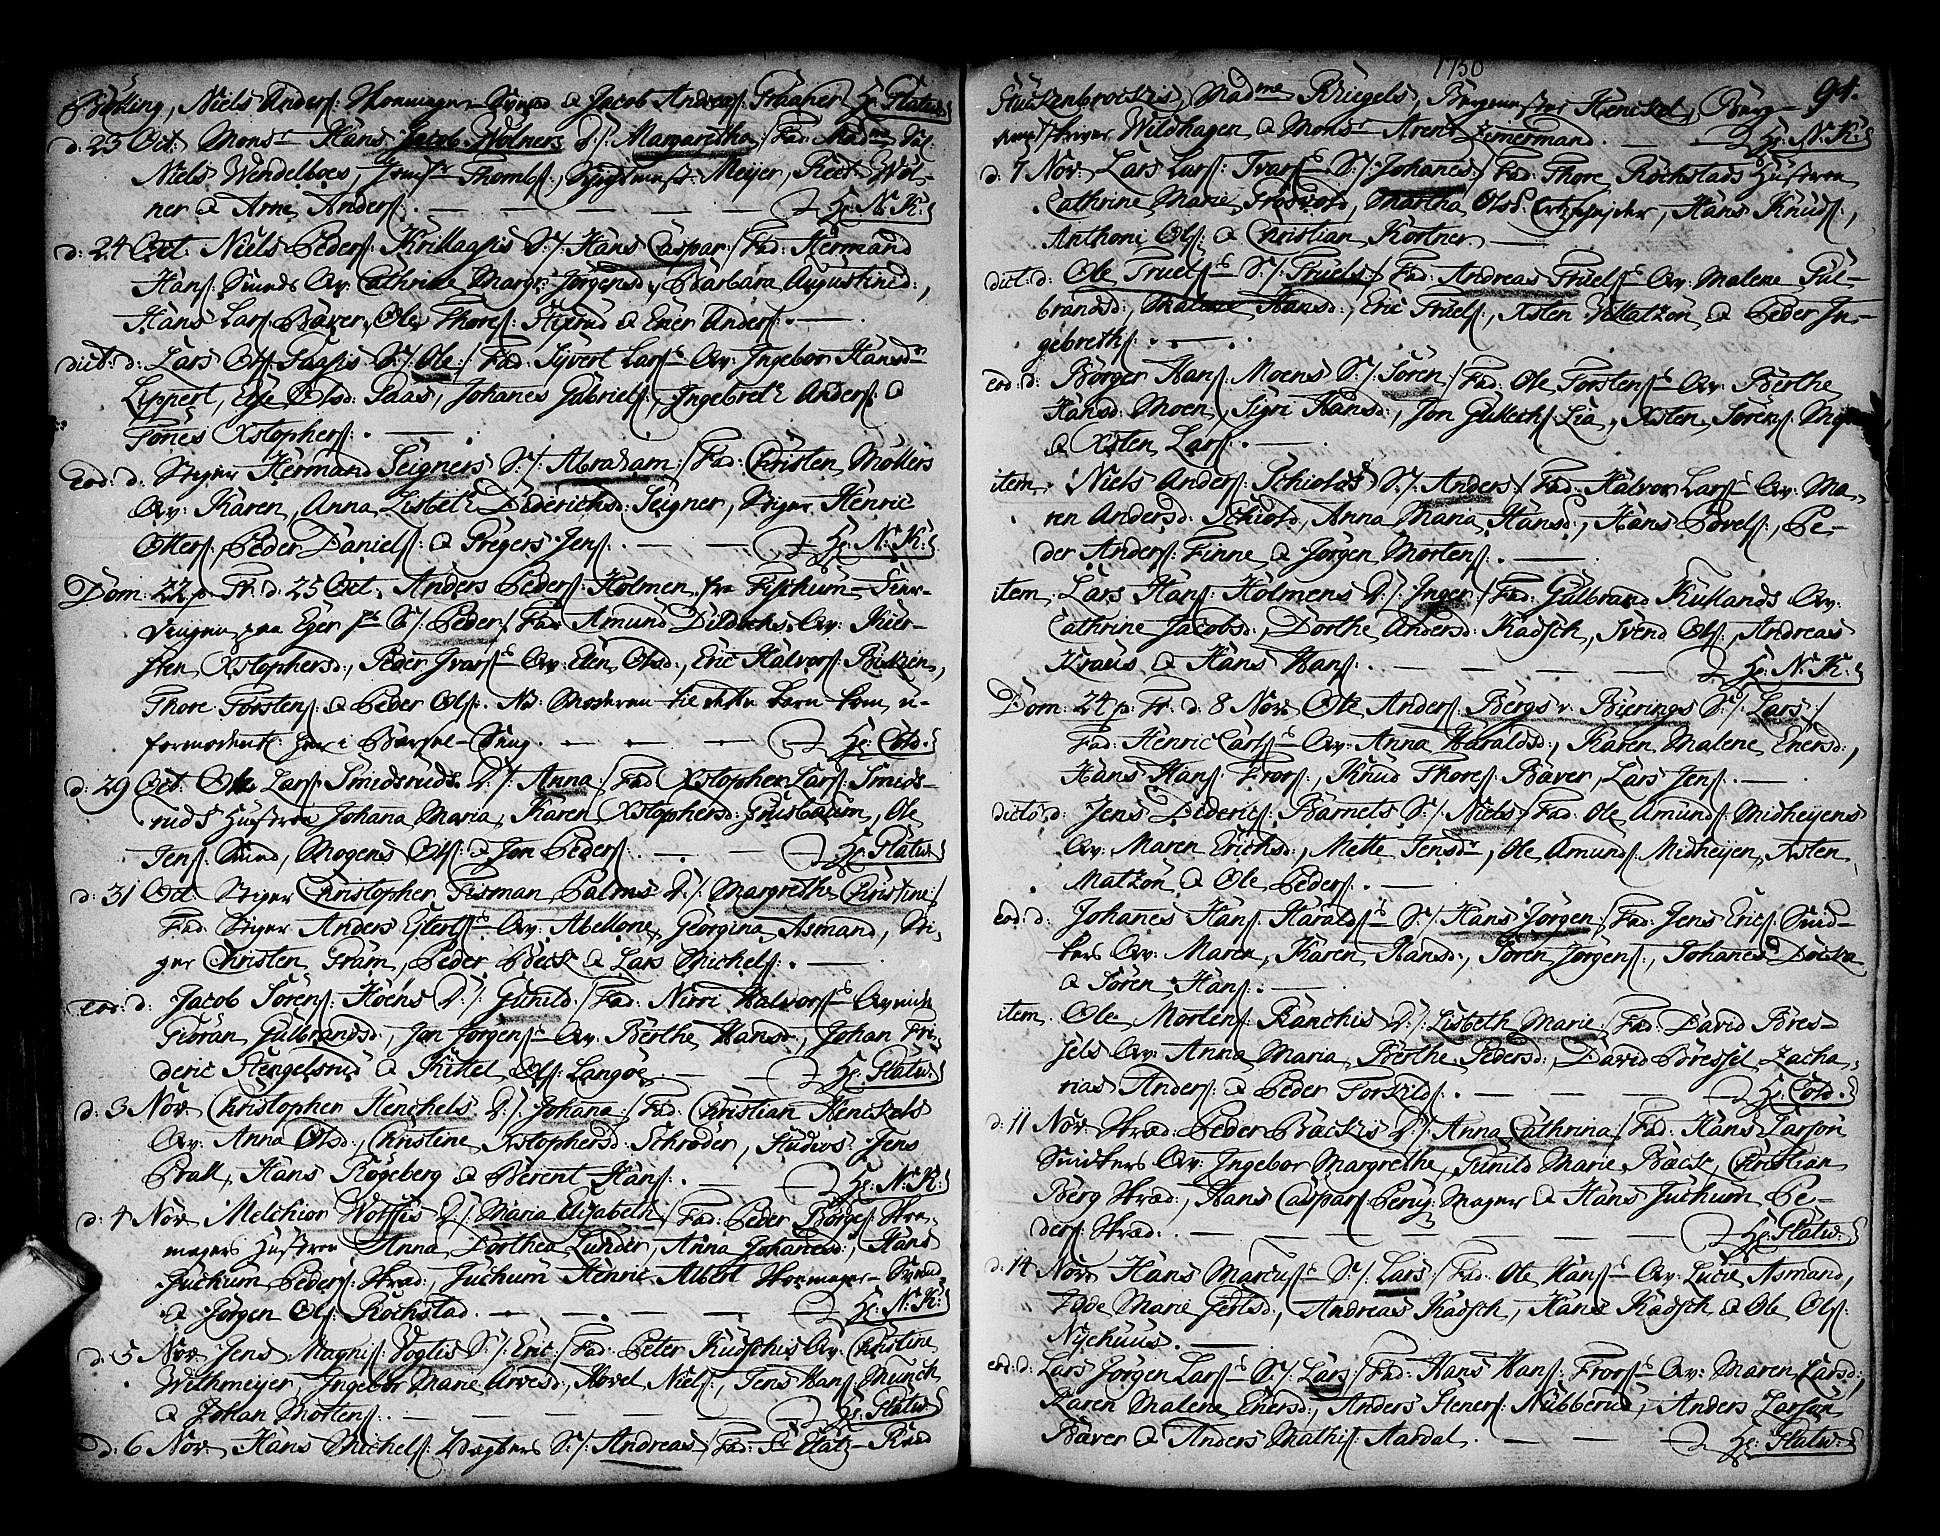 Börling, Niels Anders: Skomager Svend & Jacob Andreas: Graaner. Hr: Flatw:
d: 23 Oct: Mons:r Hans Jacob Wølners D:/: Margaretha:/ Fad: Mad:me
Niels Wendelboes, Thoms:, Meyer, Reet Wöl-
ner & Arne Anders: Hr: N: K:
d: 24 Oct: Niels Peders: Krillagsis S:/: Hans Caspar:/ Fad: Hermand
Hans: Sunds Qv: Cathrine Margr: Jörgensd:, Barbara Augustined:,
Hans Lars: Bäver, Ole Thores: & Ener Anders:
dict: d: Lars Ols: Paasis S:/: Ole:/ Fad: Syvert Lars: Qv: Ingebor Hansd:
Lippert, Else Olsd: Paas, Johanes Gabriels:, Ingebret Anders: &
Tönes Xstophers:
Eod: d: Stiger Hermand Seigners S:/: Abraham:/ Fad: Christen Möllers
Qv: Karen, Anna Lisbeth Diderichsd: Seigner, Stiger Henric
Otters:, Peder Daniels: & Gregers Jens: Hr: N: K:
Dom: 22 p: Tr: d: 25 Oct: Anders Peders: Holmen fra Fiskum-
paa Eger S:/: Peder:/ Fad: Amund Didrichs: Qv: Kier-
sten Xstophersd:, Peder Ivars: Qv: Elen Olsd:, Eric Halvors:
Thore Torstens: & Peder Ols: NB: Moderen til dette barn kom u-
formodentl: her i Barsel-Seng. Hr: Cold:
d: 29 Oct: Ole Lars: Smedsruds D:/: Anna:/ Fad: Xstopher Lars: Smeds-
ruds Hustroe Johana Maria, Karen Xstophersd: Grusbaum, Ole
Jens: Sund, Mogens Ols: & Jon Peders: Hr: Flatw:
d: 31 Oct: Stiger Christopher Tisman Palms D:/: Margrethe Christine:/
Fad: Stiger Anders Qv: Abellone, Georgina Asmand, Sti-
ger Christen Fram, Peder Beck & Lars Michels:
eod: d: Jacob Sörens: Hoens D:/: Gunild:/ Fad: Nirri Halvors: Qv:
Göran Gulbrandsd:, Jon Jörgens: Qv: Berthe Hansd:, Johan Fri-
deric Hengelsrud & Kittel Ols: Langöe. Hr: Flatw:
d: 3 Nov: Christopher Henchels D:/: Johana:/ Fad: Christian Henckels
Qv: Anna Olsd:, Christine Xstophersd: Schröder, Studios: Jens
Brall, Hans Rogeberg & Berent Hans: Hr: N: K:
d: 4 Nov: Melchior Wolffis D:/: Maria Elizabeth:/ Fad: Peder Börges: Sko-
magers Hustroe Anna Dorthea Lunder, Anna Johanesd:, Hans
Juchum Peders: Skrad:, Juchum Henric Albert Skomager-Svend
& Jörgen Ols: Rochstad. Hr: N: K:
d: 5 Nov: Jens Magnis: Vogtis S:/: Eric:/ Fad: Peter Kudskis Qv: Christine
Withmeyer, Ingebor Marie Arvesd:, Hovel Niels:, Jens Hans: Munch
& Johan Mortens: Hr: Flatw:
d: 6 Nov: Hans Michels: S:/: Andreas:/ Fad: Etatz-Raad
1750 94.
Stuckenbrockis, Mad:me Kriegels, Borgemester Henckel, Berg-
skriver Wildhagen & Mons:r Arent Zimermand. Hr: N: K:
d: 7 Nov: Lars Lars: Ivars: S:/: Johanes:/ Fad: Thore Rochstads Hustroe
Cathrine Marie, Martha Olsd: Ertzskejder, Hans Knuds:,
Anthoni Ols: & Christian Kortner
dict: d: Ole Truels: S:/: Truels:/ Fad: Andreas Truels: Qv: Malene Gul-
brandsd:, Malene Hansd:, Eric Truels:, Xsten Mattzon & Peder In-
gebreths:
eod: d: Börger Hans: Moens S:/: Sören:/ Fad: Ole Torstens: Qv: Berthe
Hansd: Moen, Sigri Hansd:, Jon Gulleths: Lia, Xsten Sörens:
& Xsten Lars:
item. Niels Anders: Schiolds S:/: Anders:/ Fad: Halvor Lars: Qv: Ma-
ren Andersd: Schiold, Anna Maria Hansd:, Hans Povels:, Pe-
der Anders: Finne & Jörgen Mortens:
item. Lars Hans: Holmens D:/: Inger:/ Fad: Gulbrand Ruklands Qv:
Cathrine Jacobsd:, Dorthe Andersd: Radsch, Svend Ols:, Andreas
Kraus & Hans Hans: Hr: N: K:
Dom: 24 p: Tr: d: 8 Nov: Ole Anders: Bergs v: Bierings S:/: Lars:/
Fad: Henric Carls: Qv: Anna Haraldsd:, Karen Malene Enersd:,
Hans Hans: Frors:, Knud Thores: Bäver, Lars Jens:
dicto d: Jens Dideric: Barnets S:/: Niels:/ Fad: Ole Amunds: Midheyens
Qv: Maren Erichsd:, Mette Jensd:, Ole Amunds: Midheyen, Xsten
Matzon & Ole Peders:
eod: d: Johanes Hans: Haralds: S:/: Hans Jörgen:/ Fad: Jens Erics: Snid-
kers Qv: Maren, Karen Hansd:, Sören Jörgens:, Johanes
& Sören Hans:
item. Ole Mortens: Ranchis D:/: Lisbeth Marie:/ Fad: David Bres-
sels Qv: Anna Maria, Berthe Pedersd:, David Bressel, Zacha-
rias Anders: & Peder Torkilds: Hr: Cold:
d: 11 Nov: Skrad: Peder Backis D:/: Anna Cathrina:/ Fad: Hans Larson
Snidkers Qv: Ingebor Margrethe, Gunild Marie Back, Christian
Berg Skrad:, Hans Caspars: mager & Hans Juchum Pe-
ders: Skrad: Hr: Flatw:
d: 14 Nov: Hans Marcus: S:/: Lars:/ Fad: Ole Hans: Qv: Lucie Asmand,
Marie Gertsd:, Andreas Radsch, Hans Radsch & Ole Ols:
Nyehuus.
eod: d: Lars Jörgen Lars: S:/: Lars:/ Fad: Hans Hans: Frors: Qv: Maren Larsd:,
Karen Malene Enersd:, Anders Steners: Nubberud, Anders Larson
Bäver & Anders Mathis: Aardal. Hr: Flatw: